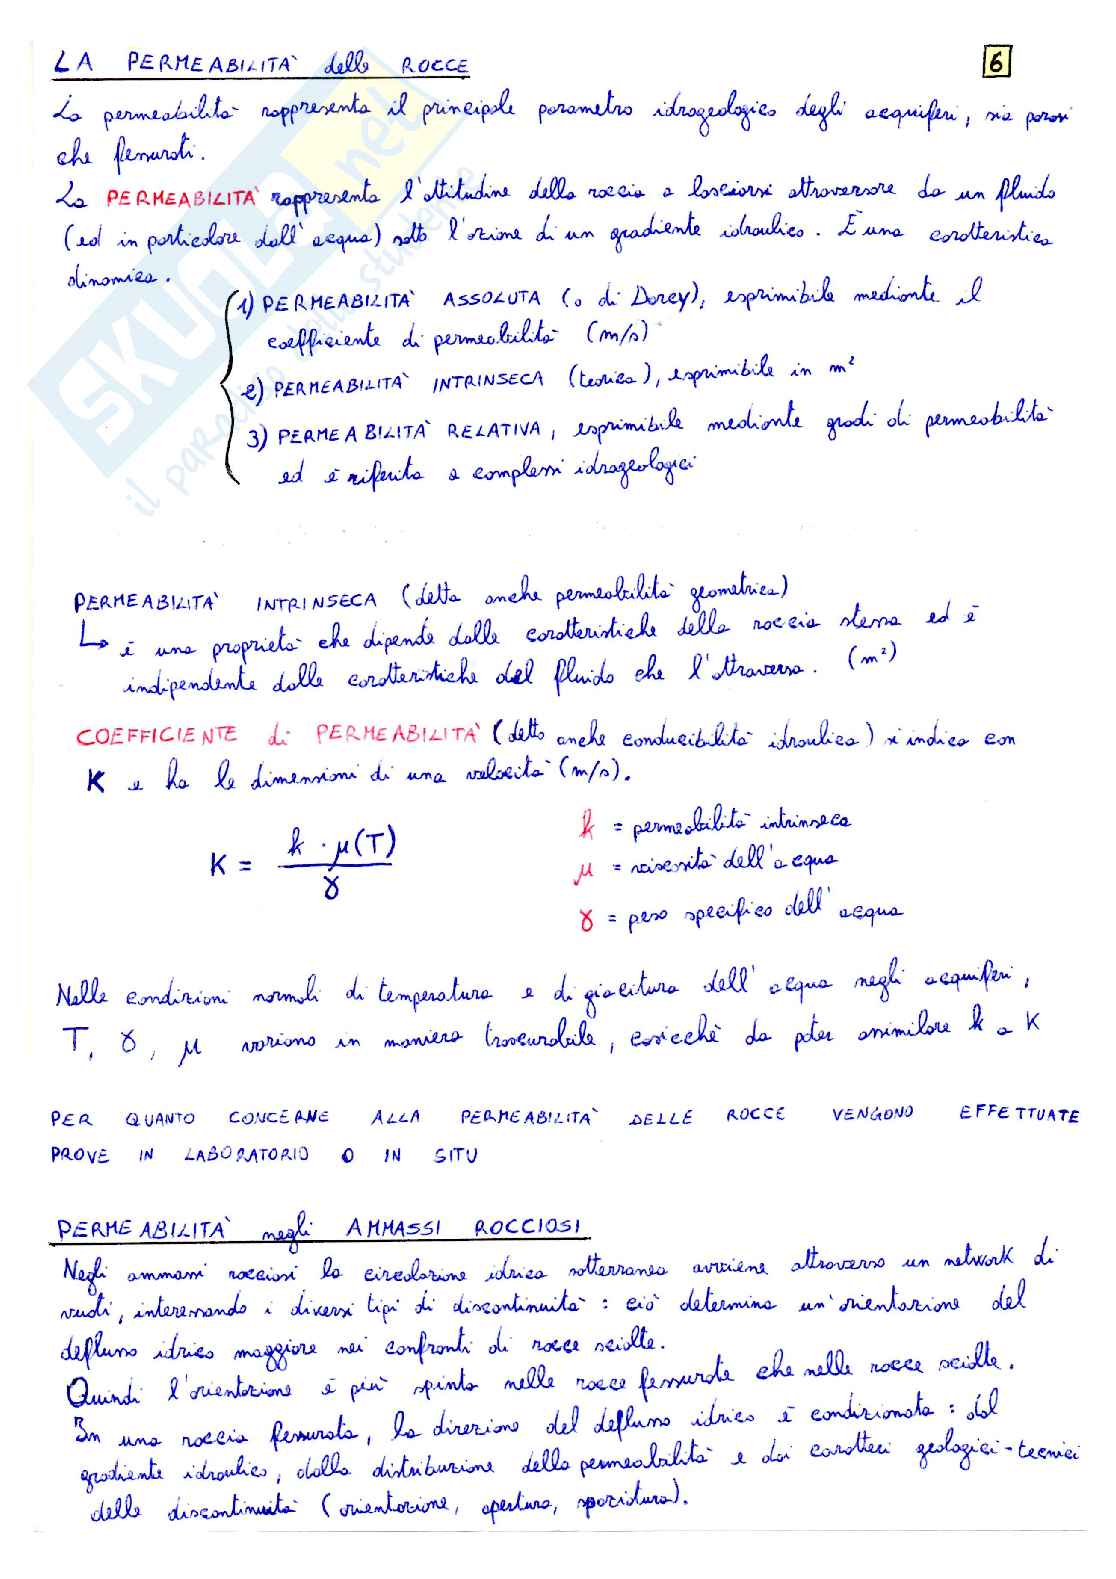 LA PERMEABILITÀ delle ROCCE
6
La permeabilità rappresenta il principale parametro idrogeologico degli acquiferi, sia porosi
che fessurati.
La PERMEABILITÀ rappresenta l'attitudine della roccia a lasciarsi attraversare da un fluido
(ed in particolare dall'acqua) sotto l'azione di un gradiente idraulico. È una caratteristica
dinamica.
1) PERMEABILITÀ ASSOLUTA (o di Darcy), esprimibile mediante il
coefficiente di permeabilità (m/s)
2) PERMEABILITÀ INTRINSECA (teorica), esprimibile in m²
3) PERMEABILITÀ RELATIVA, esprimibile mediante gradi di permeabilità
ed è riferita a complessi idrogeologici
SKUOLA.net
il paradiso dello studente
PERMEABILITÀ INTRINSECA (detta anche permeabilità geometrica)
↳ è una proprietà che dipende dalle caratteristiche della roccia stessa ed è
indipendente dalle caratteristiche del fluido che l'attraversa. (m²)
COEFFICIENTE di PERMEABILITÀ (detto anche conducibilità idraulica) si indica con
K e ha le dimensioni di una velocità (m/s).
K = k · μ(T) / γ
k = permeabilità intrinseca
μ = viscosità dell'acqua
γ = peso specifico dell'acqua
Nelle condizioni normali di temperatura e di giacitura dell'acqua negli acquiferi,
T, γ, μ variano in maniera trascurabile, cosicchè da poter assimilare k a K
PER QUANTO CONCERNE ALLA PERMEABILITÀ DELLE ROCCE VENGONO EFFETTUATE
PROVE IN LABORATORIO O IN SITU
PERMEABILITÀ negli AMMASSI ROCCIOSI
Negli ammassi rocciosi la circolazione idrica sotterranea avviene attraverso un network di
vuoti, interessando i diversi tipi di discontinuità: ciò determina un'orientazione del
deflusso idrico maggiore nei confronti di rocce sciolte.
Quindi l'orientazione è più spinta nelle rocce fessurate che nelle rocce sciolte.
In una roccia fessurata, la direzione del deflusso idrico è condizionata: dal
gradiente idraulico, dalla distribuzione della permeabilità e dai caratteri geologici-tecnici
delle discontinuità (orientazione, apertura, spaziatura).